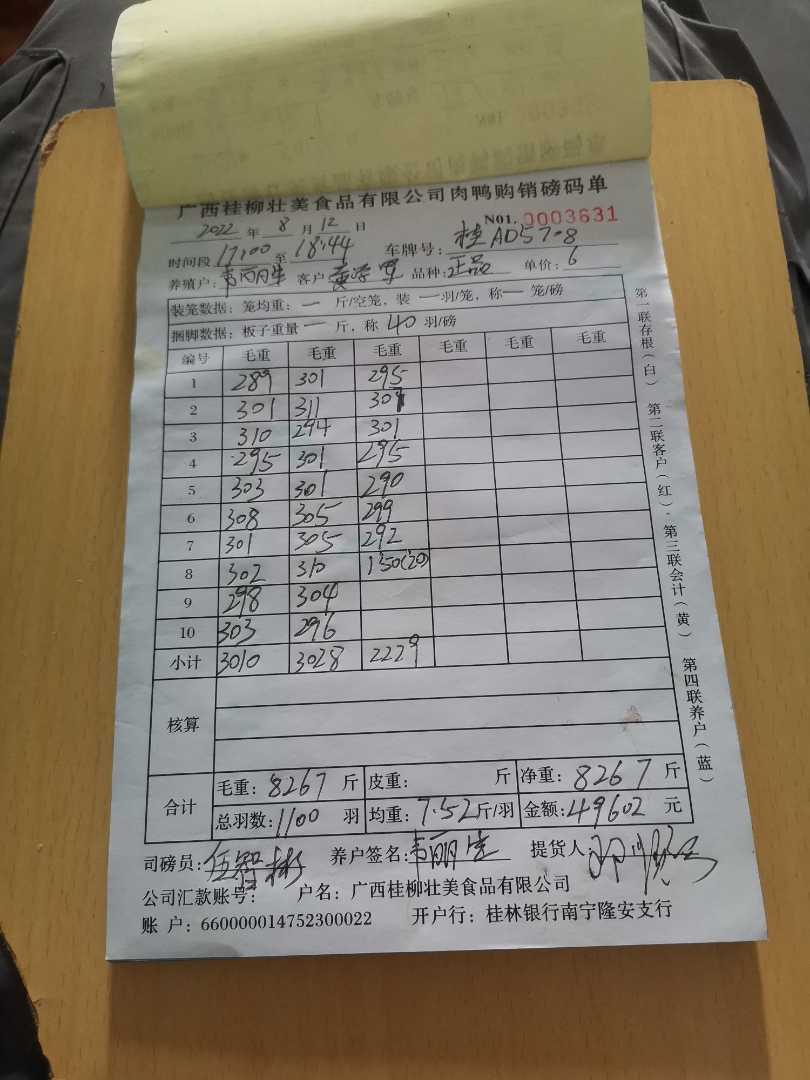 广西桂柳壮美食品有限公司肉鸭购销磅码单
2022 年 8 月 12 日 N01. 0003631
时间段 17:00 至 18:44 车牌号: 桂AD5708
养殖户: 韦丽生 客户 品种: 正品 单价: 6
装笼数据: 笼均重: 一 斤/空笼, 装 一 羽/笼, 称 一 笼/磅
捆脚数据: 板子重量 一 斤, 称 40 羽/磅
编号 毛重 毛重 毛重 毛重 毛重 毛重
1 289 301 295
2 301 311 307
3 310 294 301
4 295 301 295
5 303 301 290
6 308 305 299
7 301 305 292
8 302 310 150(20)
9 298 304
10 303 296
小计 3010 3028 2229
核算
合计 毛重: 8267 斤 皮重: 斤 净重: 8267 斤
总羽数: 1100 羽 均重: 7.52 斤/羽 金额: 49602 元
司磅员: 伍智彬 养户签名: 韦丽生 提货人:
公司汇款账号: 户名: 广西桂柳壮美食品有限公司
账 户: 660000014752300022 开户行: 桂林银行南宁隆安支行
第一联存根(白) 第二联客户(红) 第三联会计(黄) 第四联养户(蓝)